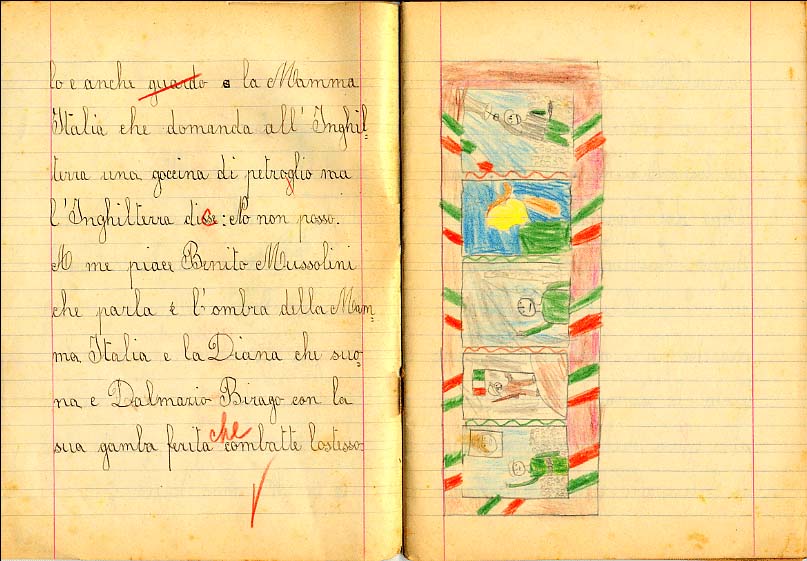 lo e anche guardo a la Mamma
Italia che domanda all' Inghil-
terra una goccina di petroglio ma
l'Inghilterra disse: No non posso.
A me piace Benito Mussolini
che parla è l'ombra della Mam-
ma Italia e la Diana che suo-
na e Dalmazio Birago con la
che
sua gamba ferita combatte lostesso